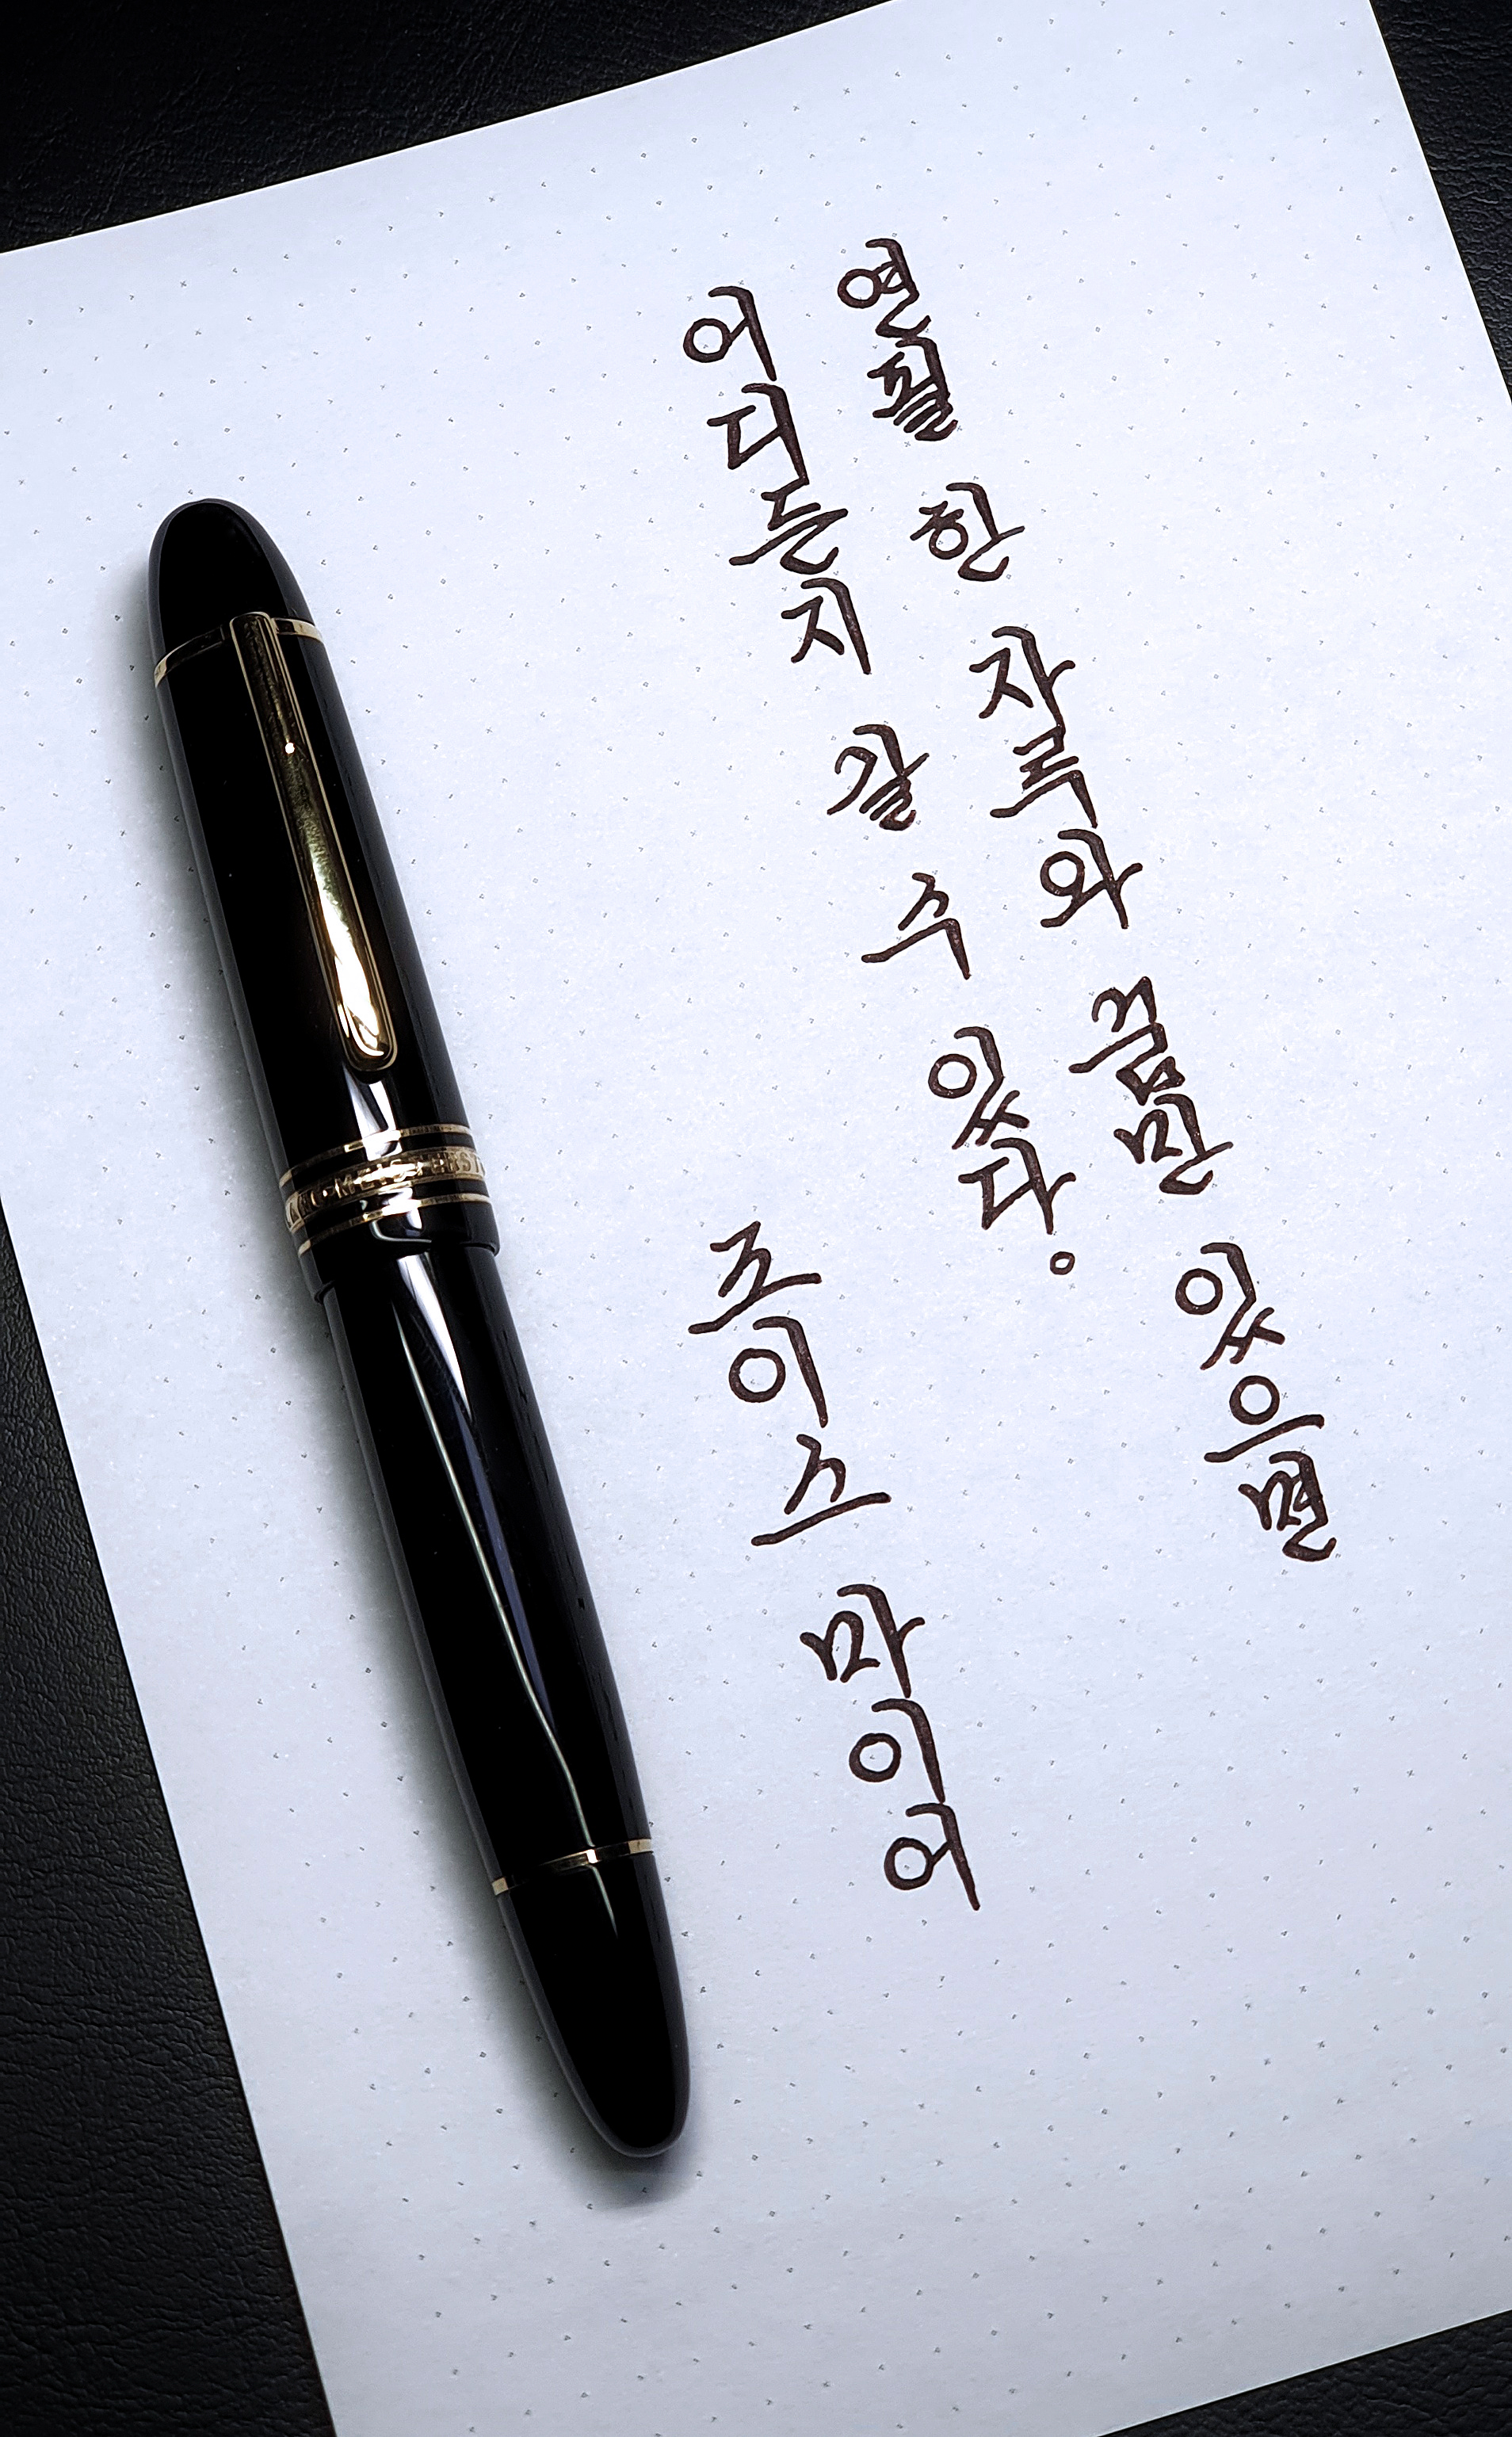 연필 한 자루와 꿈만 있으면
어디든지 갈 수 있다.
조이스 마이어